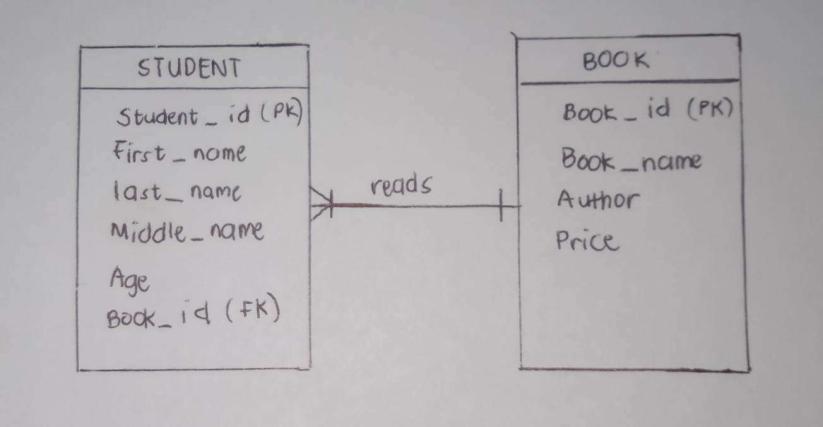 STUDENT
Student_id (PK)
First_name
last_name
Middle_name
Age
Book_id (FK)
reads
BOOK
Book_id (PK)
Book_name
Author
Price